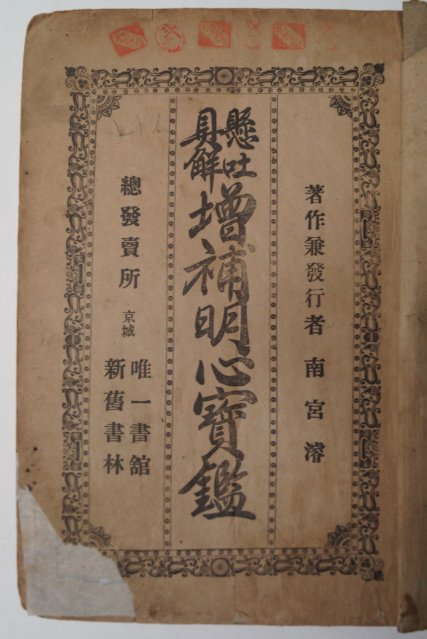 著作兼發行者 南宮濬
懸吐
具解
增補明心寶鑑
總發賣所 京城
唯一書舘
新舊書林